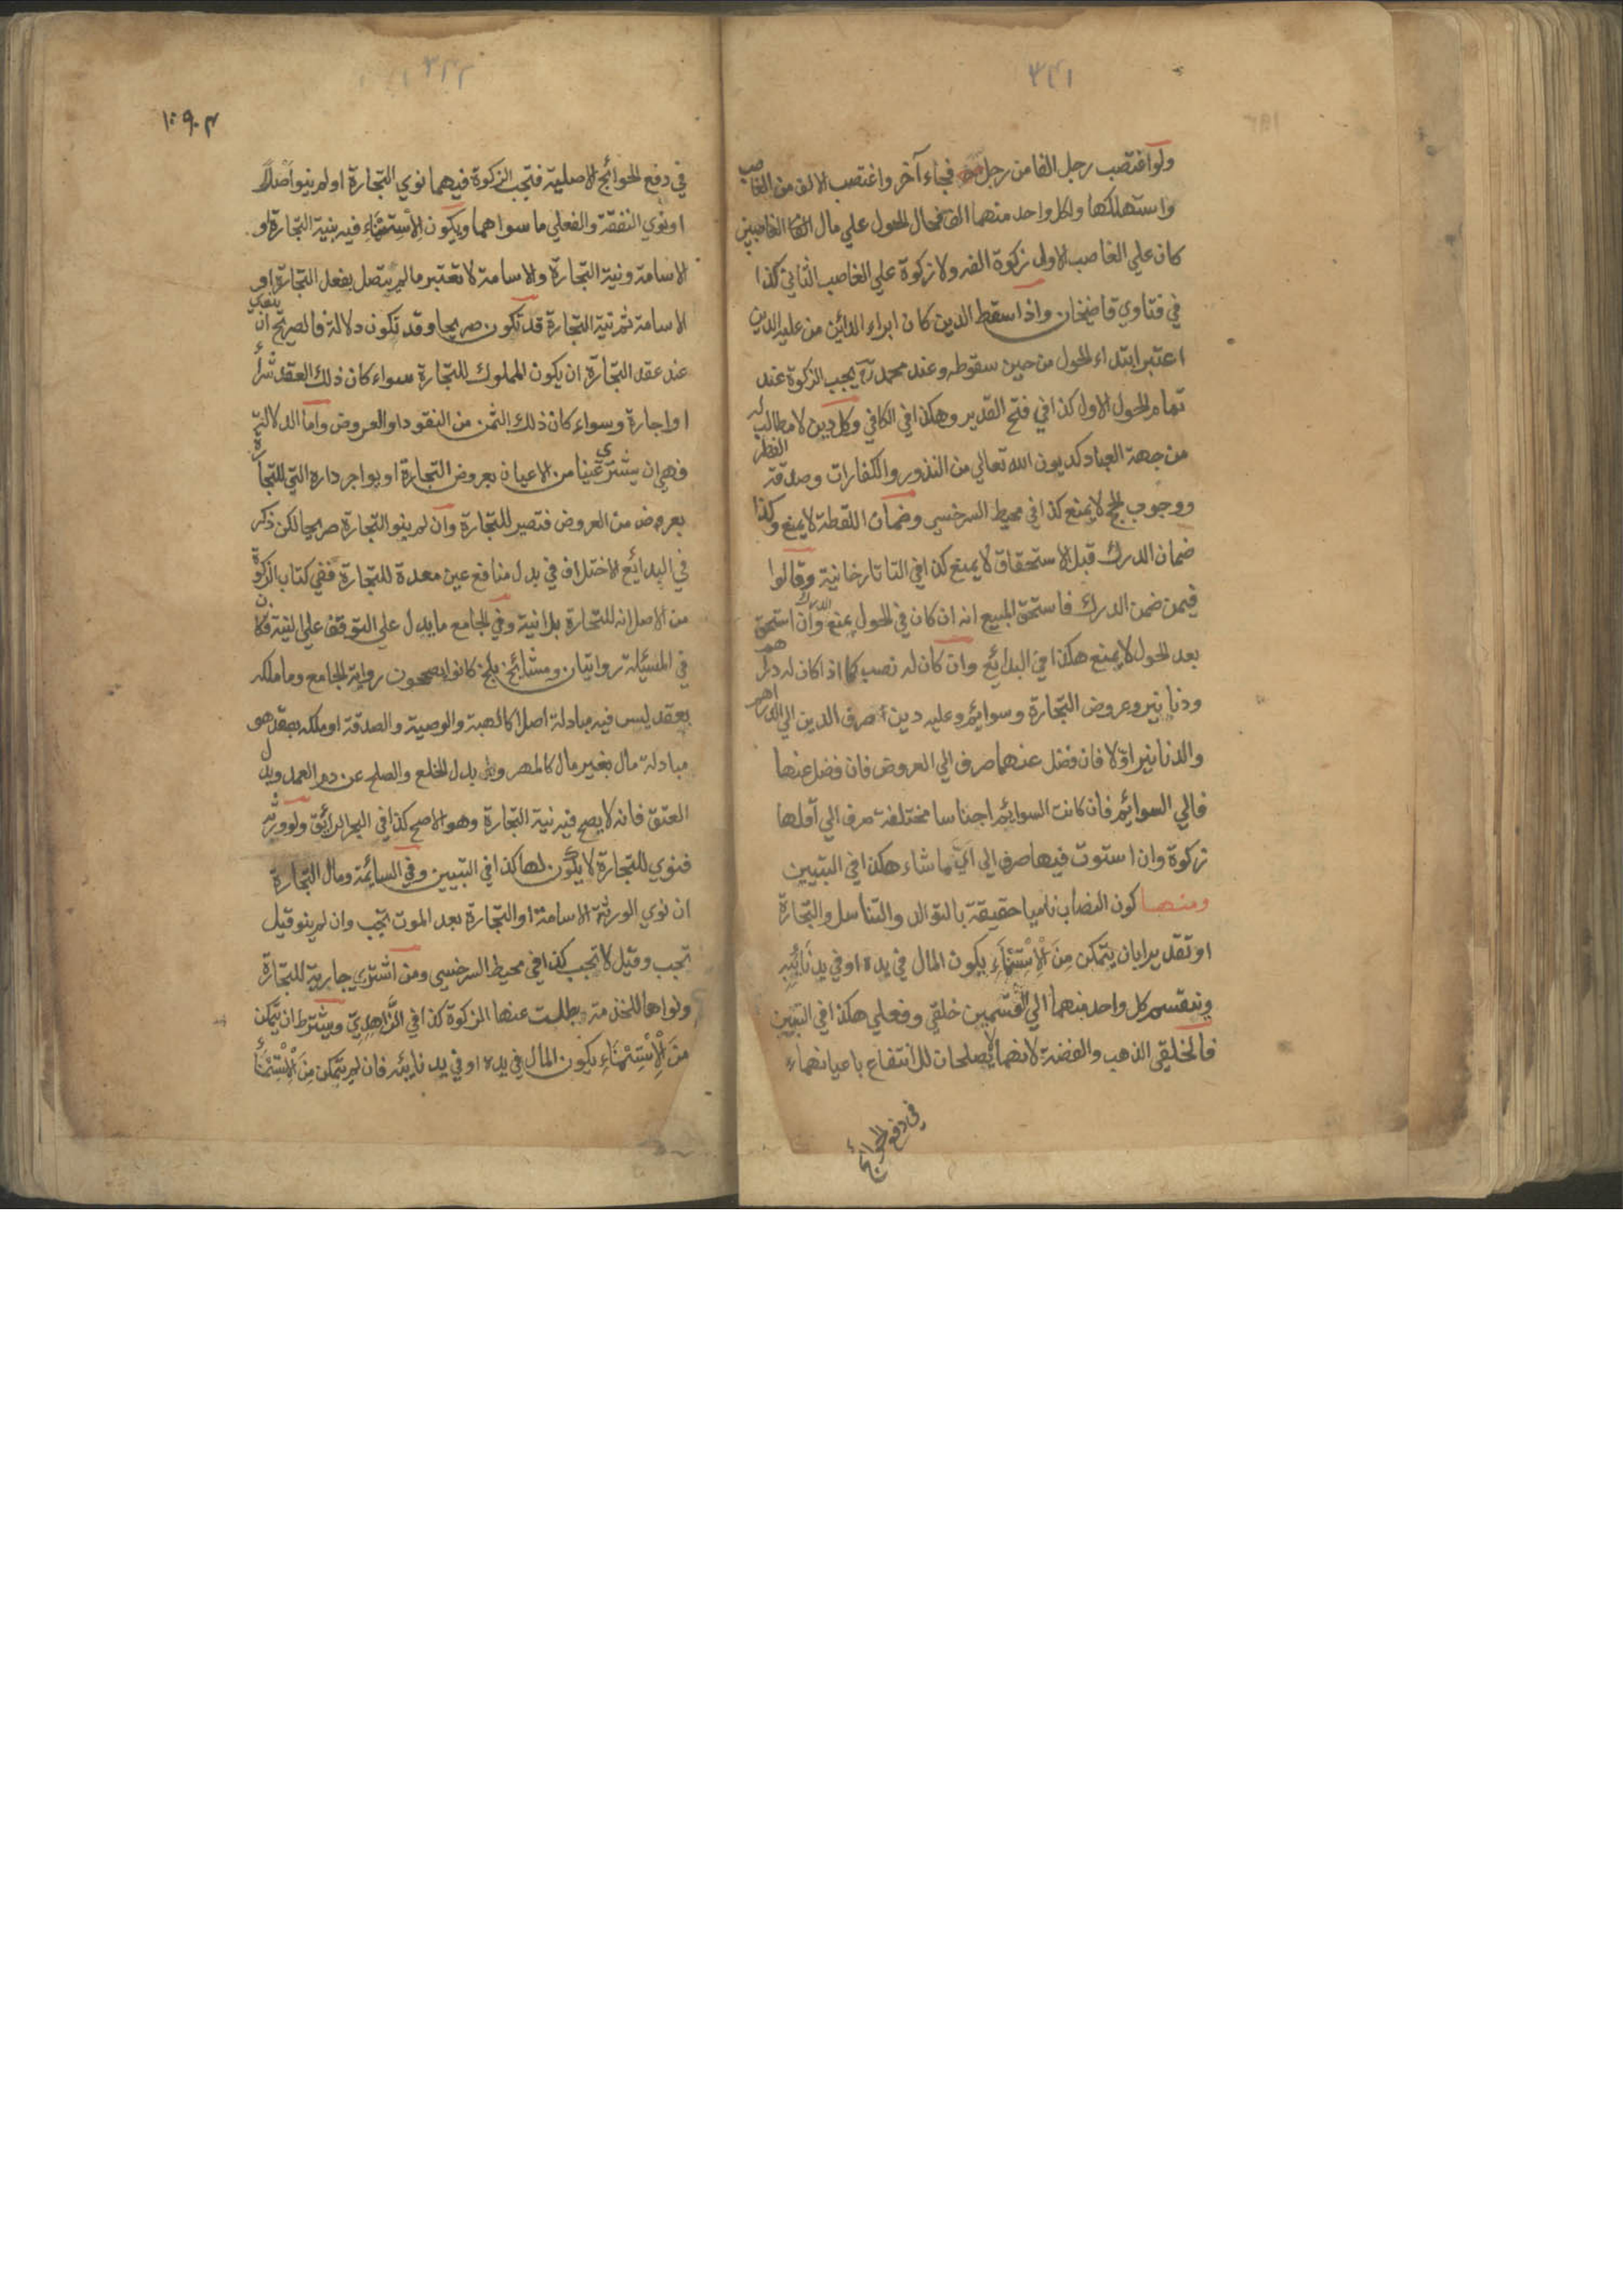 ٣٤١
ولو اغتصب رجل الفا من رجل فجاء آخر واغتصب الالف من الغاصب
واستهلكها ولكل واحد منهما الف فحال الحول علي مال الغاصبين
كان علي الغاصب الاول زكوة الفه ولا زكوة علي الغاصب الثاني كذا
في فتاوي قاضيخان واذا سقط الدين كان ابراء الدائن من عليه الدين
اعتبر ابتداء الحول من حين سقوطه وعند محمد رح يجب الزكوة عند
تمام الحول الاول كذا في فتح القدير وهكذا في الكافي وكل دين لا مطالب له
من جهة العباد كديون الله تعالي من النذور والكفارات وصدقة الفطر
ووجوب الحج لا يمنع كذا في محيط السرخسي وضمان اللقطة لا يمنع وكذا
ضمان الدرك قبل الاستحقاق لا يمنع كذا في التاتارخانية وقالوا
فيمن ضمن الدرك فاستحق المبيع انه ان كان في الحول يمنع وان استحق
بعد الحول لا يمنع هكذا في البدائع وان كان له نصب كما اذا كان له دراهم
ودنانير وعروض التجارة وسوائم وعليه دين صرف الدين الي الدراهم
والدنانير اولا فان فضل عنهما صرف الي العروض فان فضل عنها
فالي السوائم فان كانت السوائم اجناسا مختلفة صرف الي اقلها
زكوة وان استوت فيها صرف الي ايها شاء هكذا في التبيين
ومنها كون النصاب ناميا حقيقة بالتوالد والتناسل والتجارة
او تقديرا بان يتمكن مِنَ الْاِسْتِنْمَاءِ بكون المال في يده او في يد نَائِبِهِ
وينقسم كل واحد منهما الي قسمين خلقي وفعلي هكذا في التبيين
فالخلقي الذهب والفضة لانهما لا يصلحان للانتفاع باعيانهما
في دفع الحوائج
٣٤٢
في دفع الحوائج الاصلية فتجب الزكوة فيهما نوي التجارة او لم ينو اَصْلًا
او نوي النفقة والفعلي ما سواهما ويكون الْاِسْتِنْمَاءِ فيه بنية التجارة او
الاسامة ونية التجارة والاسامة لا تعتبر ما لم يتصل بفعل التجارة او
الاسامة ثم نية التجارة قد تكون صريحا وقد تكون دلالة فالصريح ان ينوي
عند عقد التجارة ان يكون المملوك للتجارة سواء كان ذلك العقد شراء
او اجارة وسواء كان ذلك الثمن من النقود او العروض واما الدلالة
فهي ان يشتري عينا من الاعيان بعروض التجارة او يواجر داره التي للتجارة
بعروض من العروض فتصير للتجارة وان لم ينو التجارة صريحا لكن ذكر
في البدائع الاختلاف في بدل منافع عين معدة للتجارة ففي كتاب الزكوة
من الاصل انه للتجارة بلا نية وفي الجامع ما يدل علي التوقف علي النية فكان
في المسئلة روايتان ومشائخ بلخ كانوا يصححون رواية الجامع وما ملكه
بعقد ليس فيه مبادلة اصلا كالهبة والوصية والصدقة او ملكه بعقد هو
مبادلة مال بغير مال كالمهر وبدل الخلع والصلح عن دم العمد وبدل
العتق فانه لا يصح فيه نية التجارة وهو الاصح كذا في البحر الرائق ولو ورثه
فنوي للتجارة لا يكون لها كذا في التبيين وفي السائمة ومال التجارة
ان نوي الورثة الاسامة او التجارة بعد الموت تجب وان لم ينو قيل
تجب وقيل لا تجب كذا في محيط السرخسي ومن اشتري جارية للتجارة
ونواها للخدمة بطلت عنها الزكوة كذا في الزَّاهِدِيّ ويشترط ان يتمكن
مِنَ الْاِسْتِنْمَاءِ بكون المال في يده او في يد نائبه فان لم يتمكن مِنَ الْاِسْتِنْمَاءِ